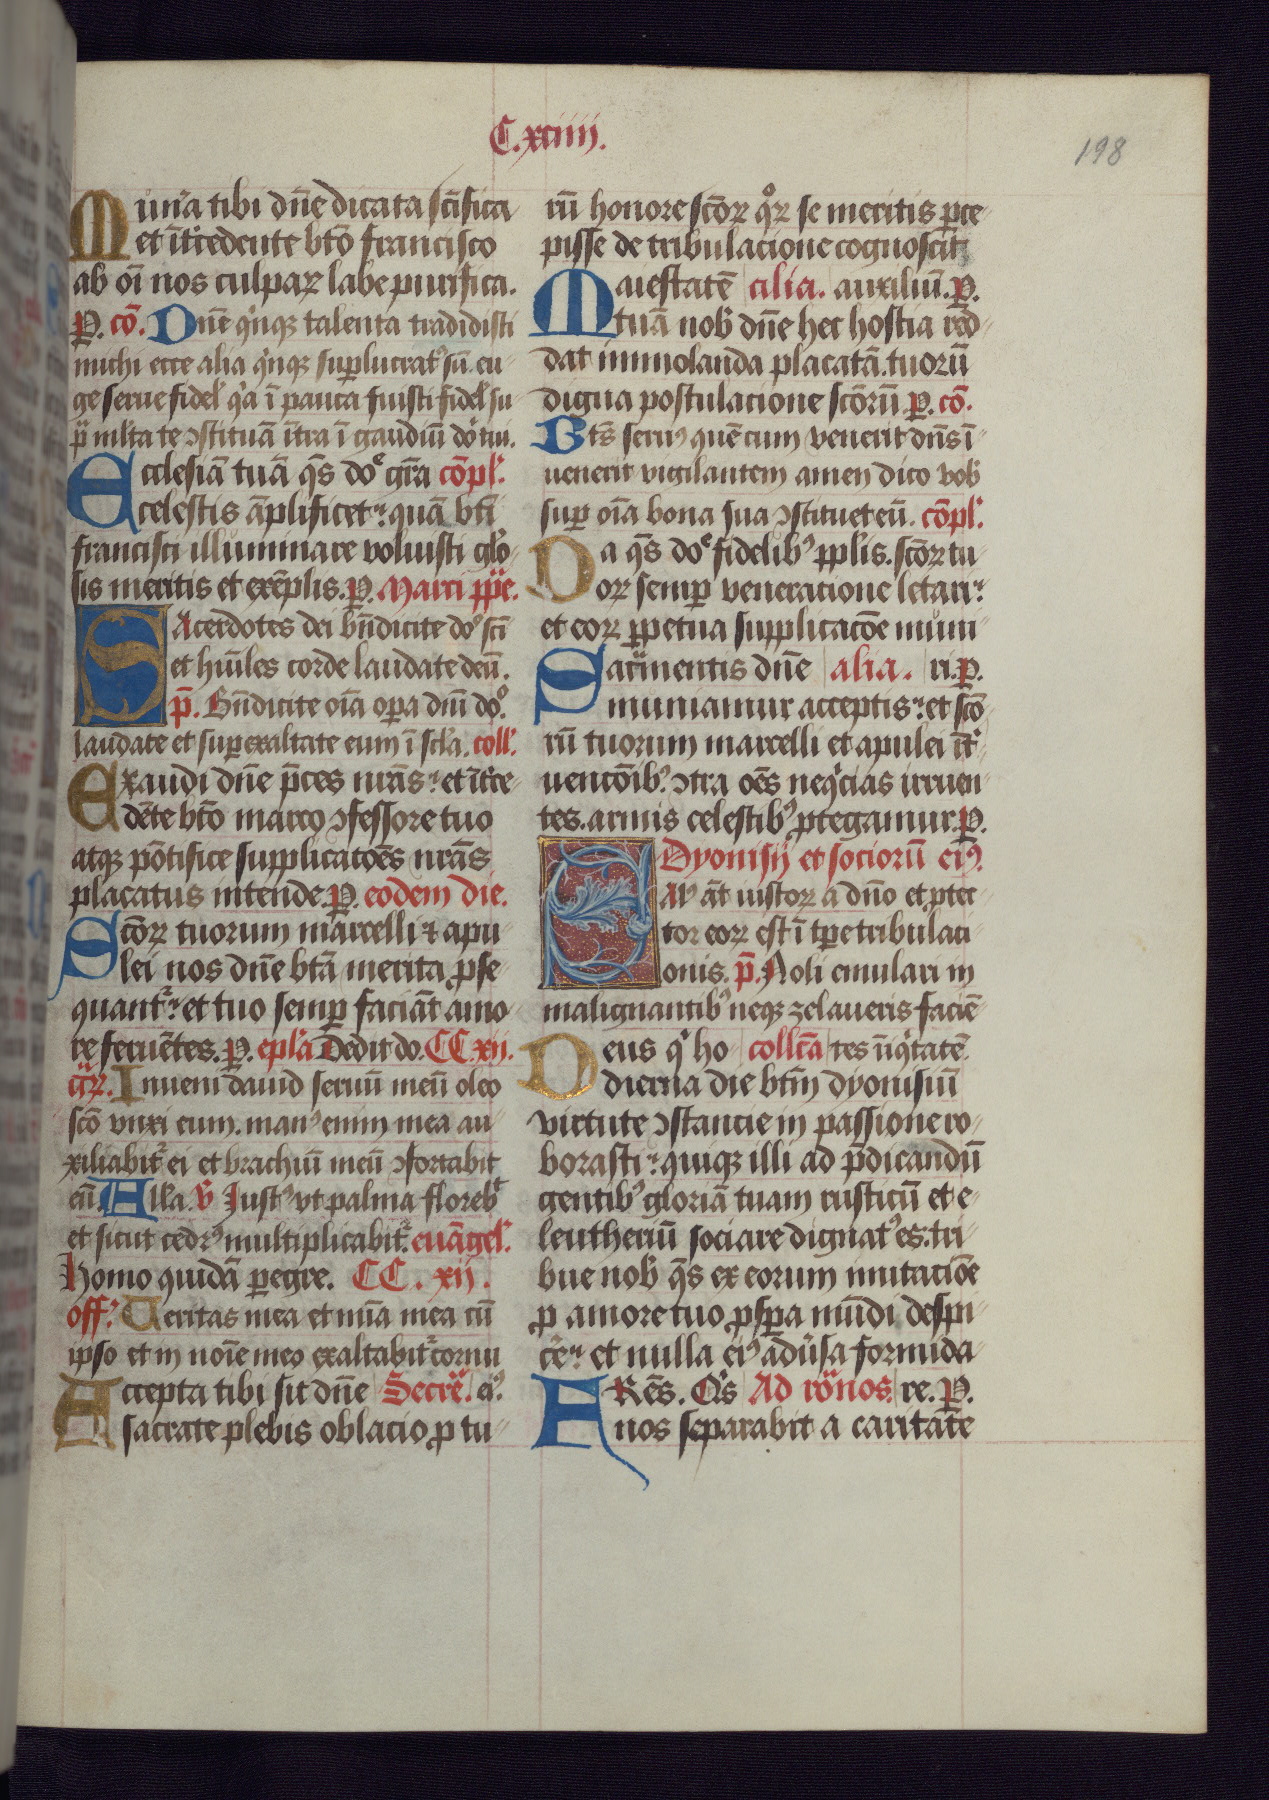 C.xciiii.
198
Mun̄a tibi dn̄e dicata scīfica
et īt̄cedente btō francisco
ab oī nos culpaꝝ labe purifica.
P. cō. Dn̄e qͥnqꝫ talenta tradidisti
michi ecce alia qͥnqꝫ suꝑlucratꝰ sū. eu-
ge serue fidel' qͥa ī pauca fuisti fidel' su-
p̄ ml̄ta te ꝯstituā ītra ī gaudiū dōi tui.
Ecclesiā tuā q̄s doͤ gr̄a cōpl'.
celestis āplificet: quā bt̄i
francisci illuminare voluisti glō-
sis meritis et exēplis. P. Marci pp̄e.
SAcerdotes dei bn̄dicite doͦ scī
et hūiles corde laudate deū.
p̄. Bn̄dicite oīa oꝑa dnī dōo.
laudate et suꝑexaltate eum ī scl̄a. coll'.
Exaudi dn̄e p̄ces nr̄as: et īt̄ce-
dēte btō marco ꝯfessore tuo
atqꝫ pōtifice supplicatōes nr̄as
placatus intende. P. eodem die.
Scōꝝ tuorum marcelli ⁊ apu-
lei nos dn̄e btā merita ꝓse-
quantᷣ: et tuo semꝑ faciāt amo-
re feruētes. P. epl̄a Dedit do. CC.xij.
Gr̄. Inueni dauid seruū meū oleo
scō vnxi eum. manꝰ enim mea au-
xiliabitᷣ ei et brachiū meū ꝯfortabit
eū. Alla. V̄ Justꝰ vt palma florebͭ
et sicut cedrꝰ multiplicabitᷣ. euāgel'.
Homo quidā ꝑegre. CC. xij.
Off'. Veritas mea et mīa mea cū
ipso et in noīe meo exaltabitᷣ cornu
Accepta tibi sit dn̄e Secre. eiꝰ.
sacrate plebis oblacio ꝓ tu-
rū honore scōꝝ qͦꝝ se meritis ꝑce-
pisse de tribulacione cognoscit
Maiestatē alia. auxiliū. P.
tuā nob̄ dn̄e hec hostia red-
dat immolanda placatā. tuorū
digna postulacione scōrū P. cō.
Bt̄s seruꝰ quē cum venerit dn̄s ī-
uenerit vigilantem amen dico vob̄
suꝑ oīa bona sua ꝯstituet eū. cōpl'.
Da q̄s doͤ fidelibꝰ pplis. scōꝝ tu-
oꝝ semꝑ veneratione letari:
et eoꝝ ꝑpetua supplicacōe muni-
Sacͣmentis dn̄e alia. ri. P.
muniamur acceptis: et scō-
rū tuorum marcelli et apulei īt̄-
uencōibꝰ ꝯtra oēs neqͥcias irruen-
tes. armis celestibꝰ ꝓtegamur. P.
Dyonisij et sociorū eiꝰ.
SAlꝰ āt iustoꝝ a dn̄o et ꝓtec-
tor eoꝝ est ī tꝑe tribulaci-
onis. p̄. Noli emulari in
malignantibꝰ neqꝫ zelaueris faciē-
Deus qͥ ho- collc̄a tes īiqͥtatē.
dierna die btm̄ dyonisiū
virtute ꝯstancie in passione ro-
borasti: quiqꝫ illi ad p̄dicandū
gentibꝰ gloriā tuam rusticū et e-
leutheriū sociare dignatꝰ es: tri-
bue nob̄ q̄s ex eorum imitacōe
ꝓ amore tuo ꝓsꝑa mūdi despi-
ce: et nulla eiꝰ adūsa formida-
E Res. Qͥs Ad roͣnos. re. P.
nos separabit a caritate